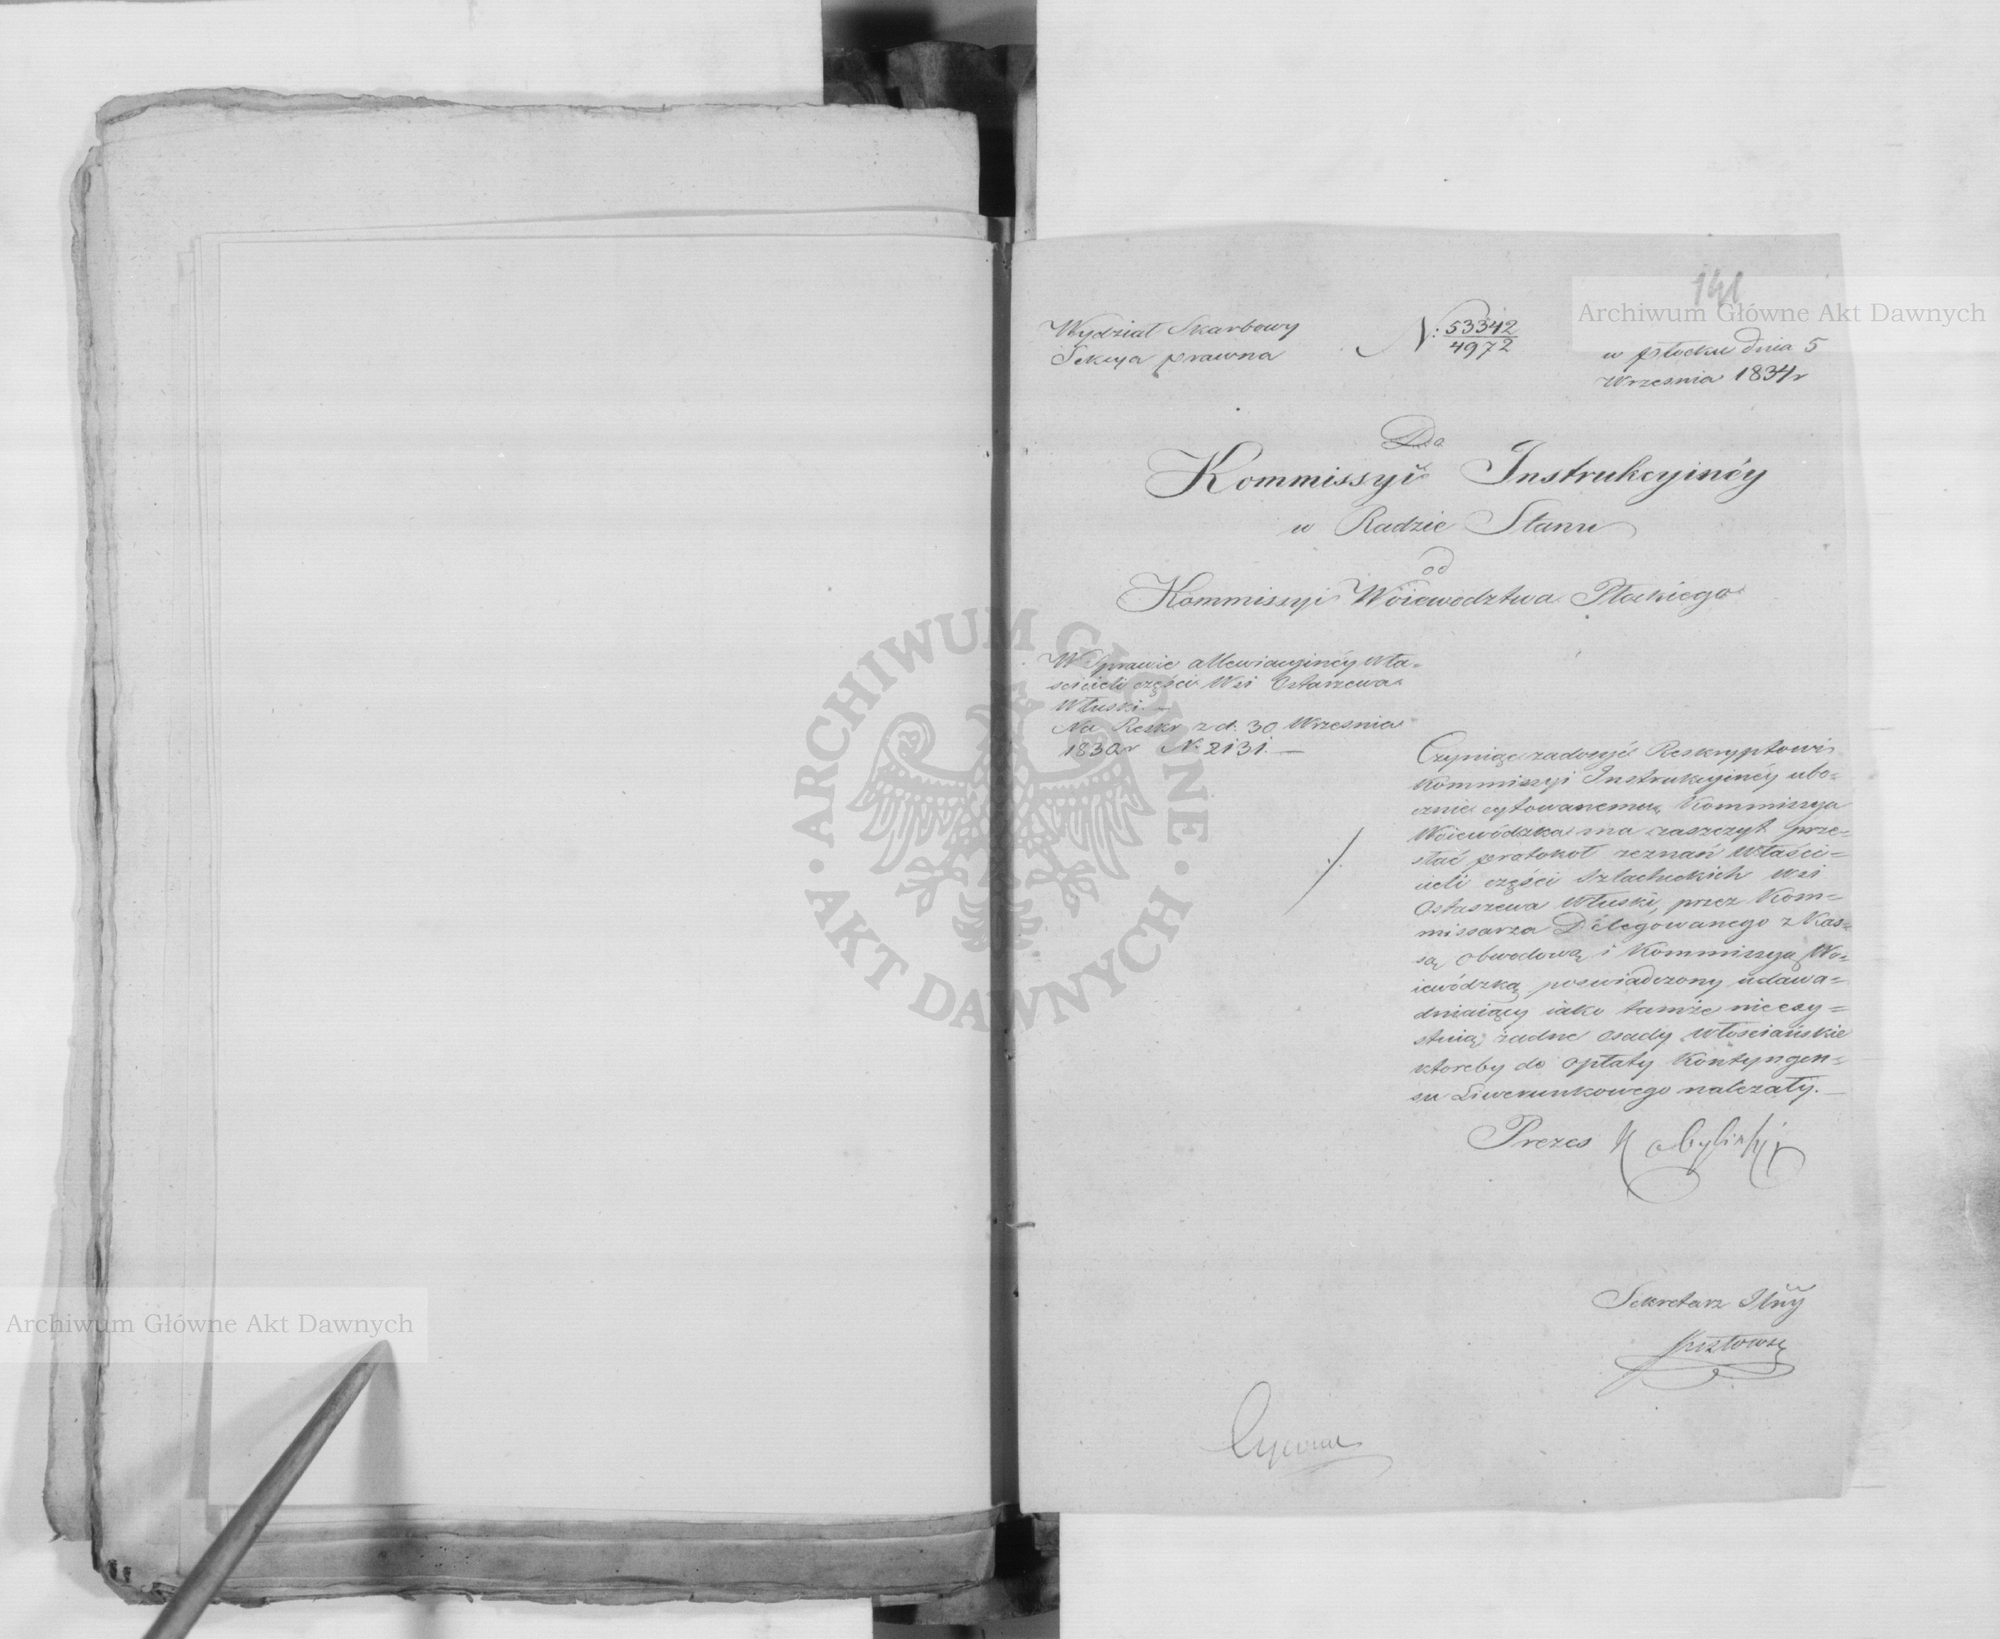 141
Wydział Skarbowy
Sekcya prawna
N: 53342
4972
w Płocku dnia 5
Września 1834 r
Do
Kommissyi Instrukcyinéy
w Radzie Stanu
od
Kommissyi Wóiewodztwa Płockiego
W Sprawie allewiacyinéy wła-
ścicieli części Wsi Ostaszewa
Włuski.—
Na Reskr z d. 30 Września
1830 r N. 2131.—
Czyniąc zadosyć Reskryptowi
Kommissyi Instrukcyinéy ubo-
cznie cytowanemu, Kommissya
Woiewódzka ma zaszczyt prze-
słać protokół zeznań Właści-
cieli części Szlacheckich Wsi
Ostaszewa Włuski, przez Kom-
missarza Delegowanego z Kas-
są obwodową i Kommissyą Wo-
iewódzką poświadczony udawa-
dniaiący iako tamże nieexy-
stuią żadne osady włościańskie
któreby do opłaty Kontyngen-
su Liwerunkowego należały.—
Prezes Kobyliński
Sekretarz Jlny
ARCHIWUM GŁÓWNE AKT DAWNYCH
Archiwum Główne Akt Dawnych
Archiwum Główne Akt Dawnych